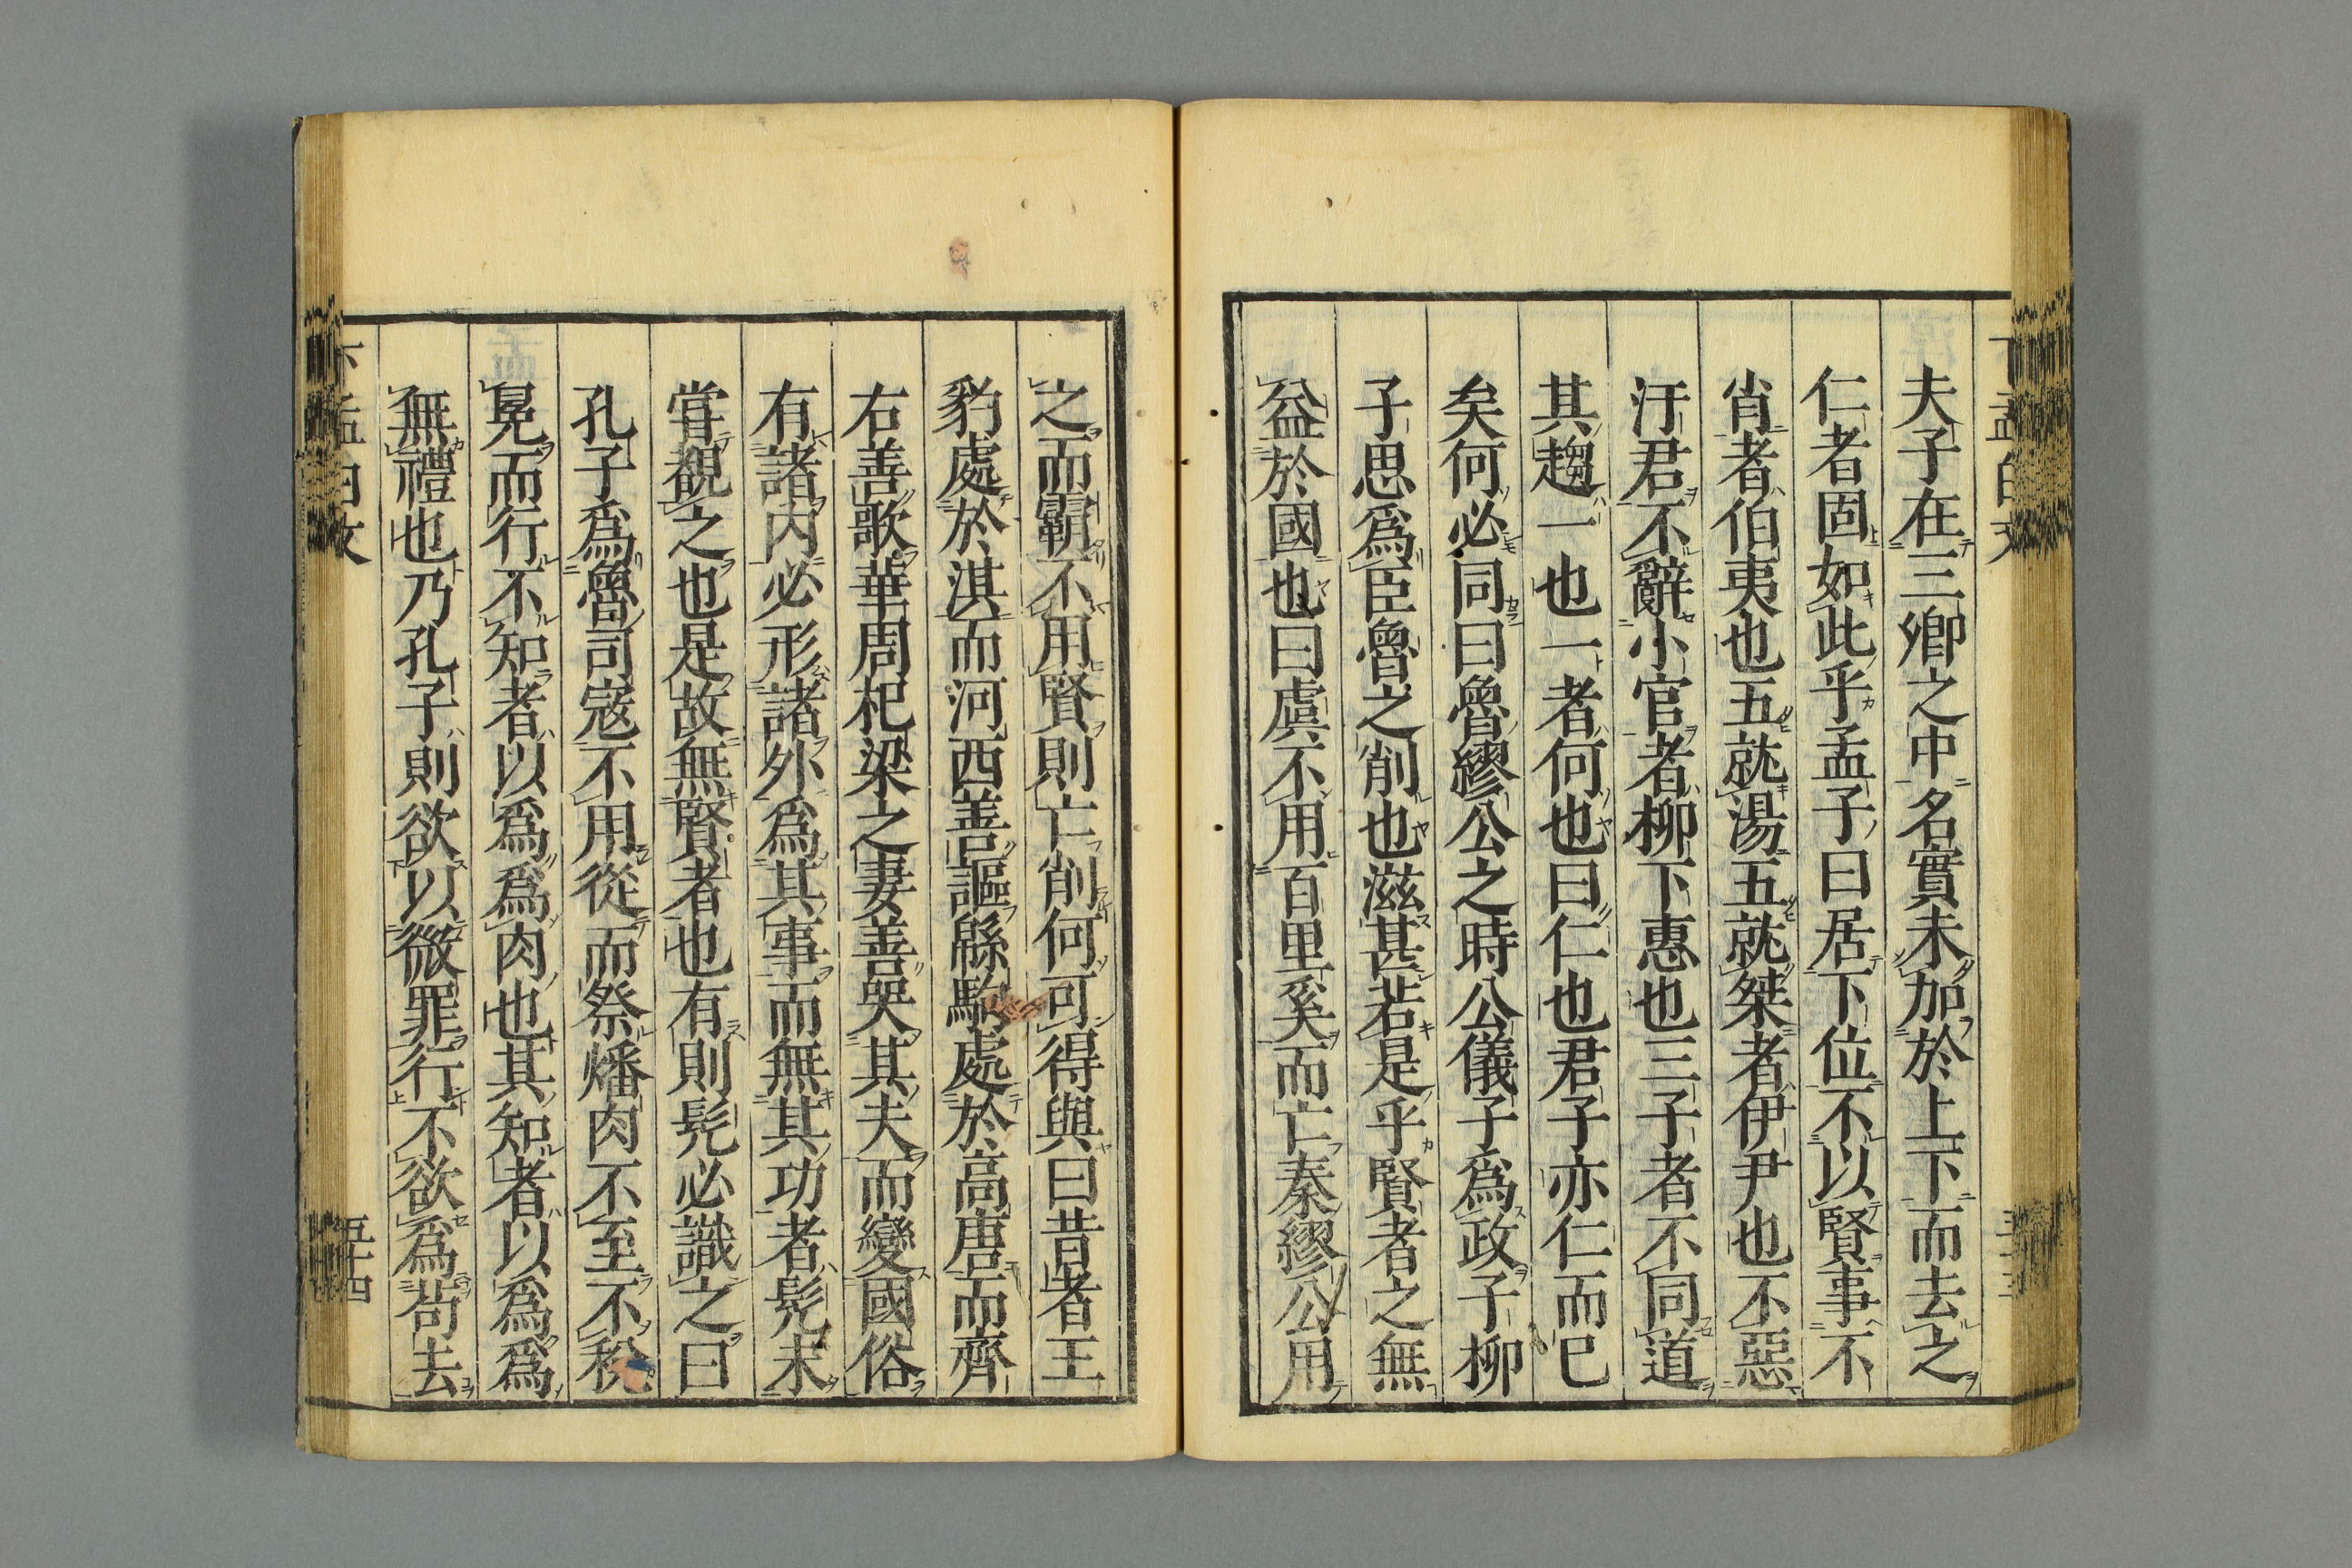 夫子在三卿之中名實未加於上下而去之
仁者固如此乎孟子曰居下位不以賢事不
肖者伯夷也五就湯五就桀者伊尹也不惡
汙君不辭小官者柳下惠也三子者不同道
其趨一也一者何也曰仁也君子亦仁而已
矣何必同曰魯繆公之時公儀子爲政子柳
子思爲臣魯之削也滋甚若是乎賢者之無
益於國也曰虞不用百里奚而亡秦繆公用
之而霸不用賢則亡削何可得與曰昔者王
豹處於淇而河西善謳緜駒處於高唐而齊
右善歌華周杞梁之妻善哭其夫而變國俗
有諸內必形諸外爲其事而無其功者髡未
嘗覩之也是故無賢者也有則髡必識之曰
孔子爲魯司寇不用從而祭燔肉不至不稅
冕而行不知者以爲爲肉也其知者以爲爲
無禮也乃孔子則欲以微罪行不欲爲苟去
下孟白文
五十四